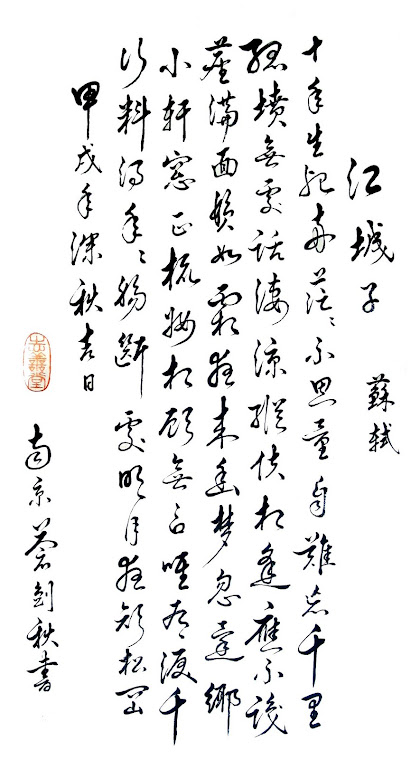 江城子 蘇軾
十年生死兩茫〻不思量自難忘千里
孤墳無處話淒涼縱使相逢應不識
塵滿面鬢如霜夜來幽夢忽還鄉
小軒窓正梳妝相顧無言唯有淚千
行料得年〻腸斷處明月夜短松岡
甲戌年深秋吉日
南京 劍秋書